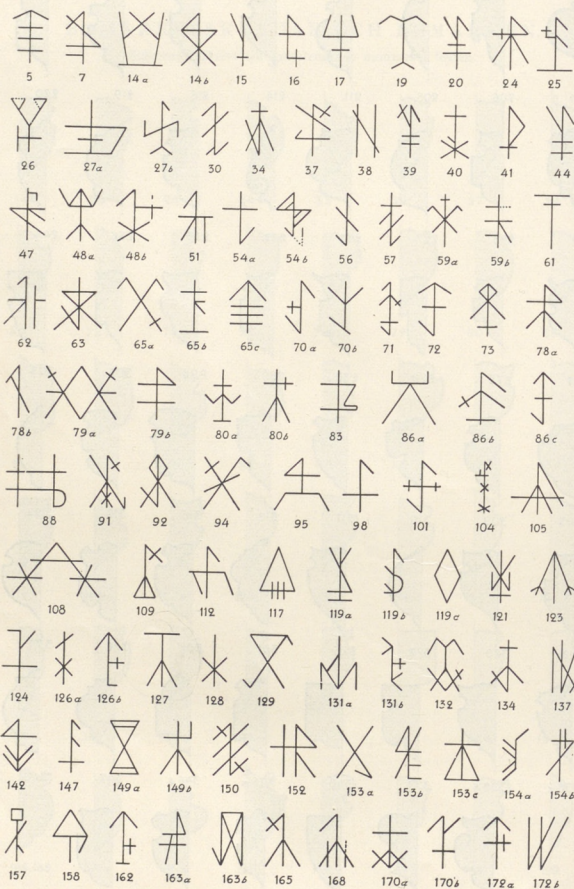 5 7 14a 14b 15 16 17 19 20 24 25
26 27a 27b 30 34 37 38 39 40 41 44
47 48a 48b 51 54a 54b 56 57 59a 59b 61
62 63 65a 65b 65c 70a 70b 71 72 73 78a
78b 79a 79b 80a 80b 83 86a 86b 86c
88 91 92 94 95 98 101 104 105
108 109 112 117 119a 119b 119c 121 123
124 126a 126b 127 128 129 131a 131b 132 134 137
142 147 149a 149b 150 152 153a 153b 153c 154a 154b
157 158 162 163a 163b 165 168 170a 170b 172a 172b